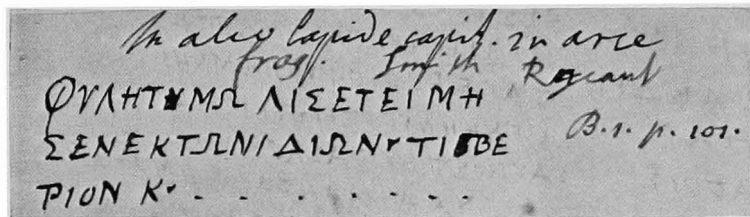 In alio lapide capit. in arce
frag. Smith Rycaut
ΦΥΛΗΤΥΜΩ ΛΙΣΕΤΕΙΜΗ
ΣΕΝΕΚΤΩΝΙΔΙΩΝ۰ΤΙΒΕ B.1. p. 101.
ΡΙΟΝ Κ۰ . . . . . . . .